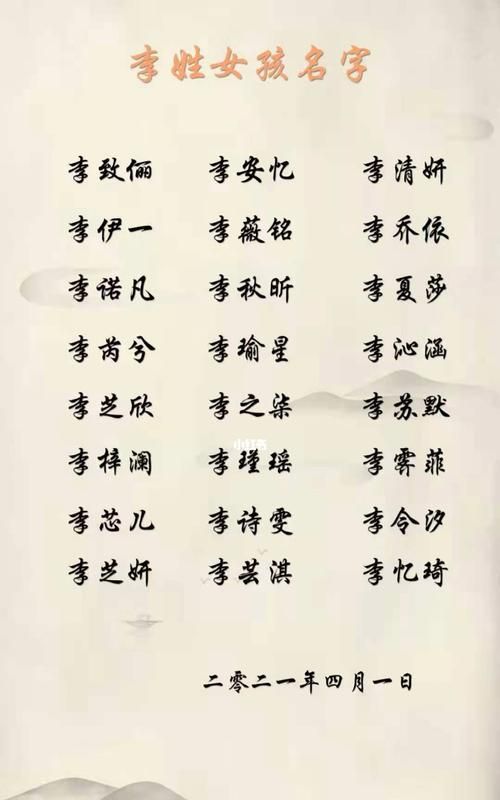 李姓女孩名字
李致俪 李安忆 李清妍
李伊一 李薇铭 李乔依
李诺凡 李秋昕 李夏莎
李芮兮 李瑜星 李沁涵
李芝欣 李之柒 李苏默
小红书
李梓澜 李瑾瑶 李霁菲
李芯儿 李诗雯 李令汐
李芝妍 李芸淇 李忆琦
二零二一年四月一日